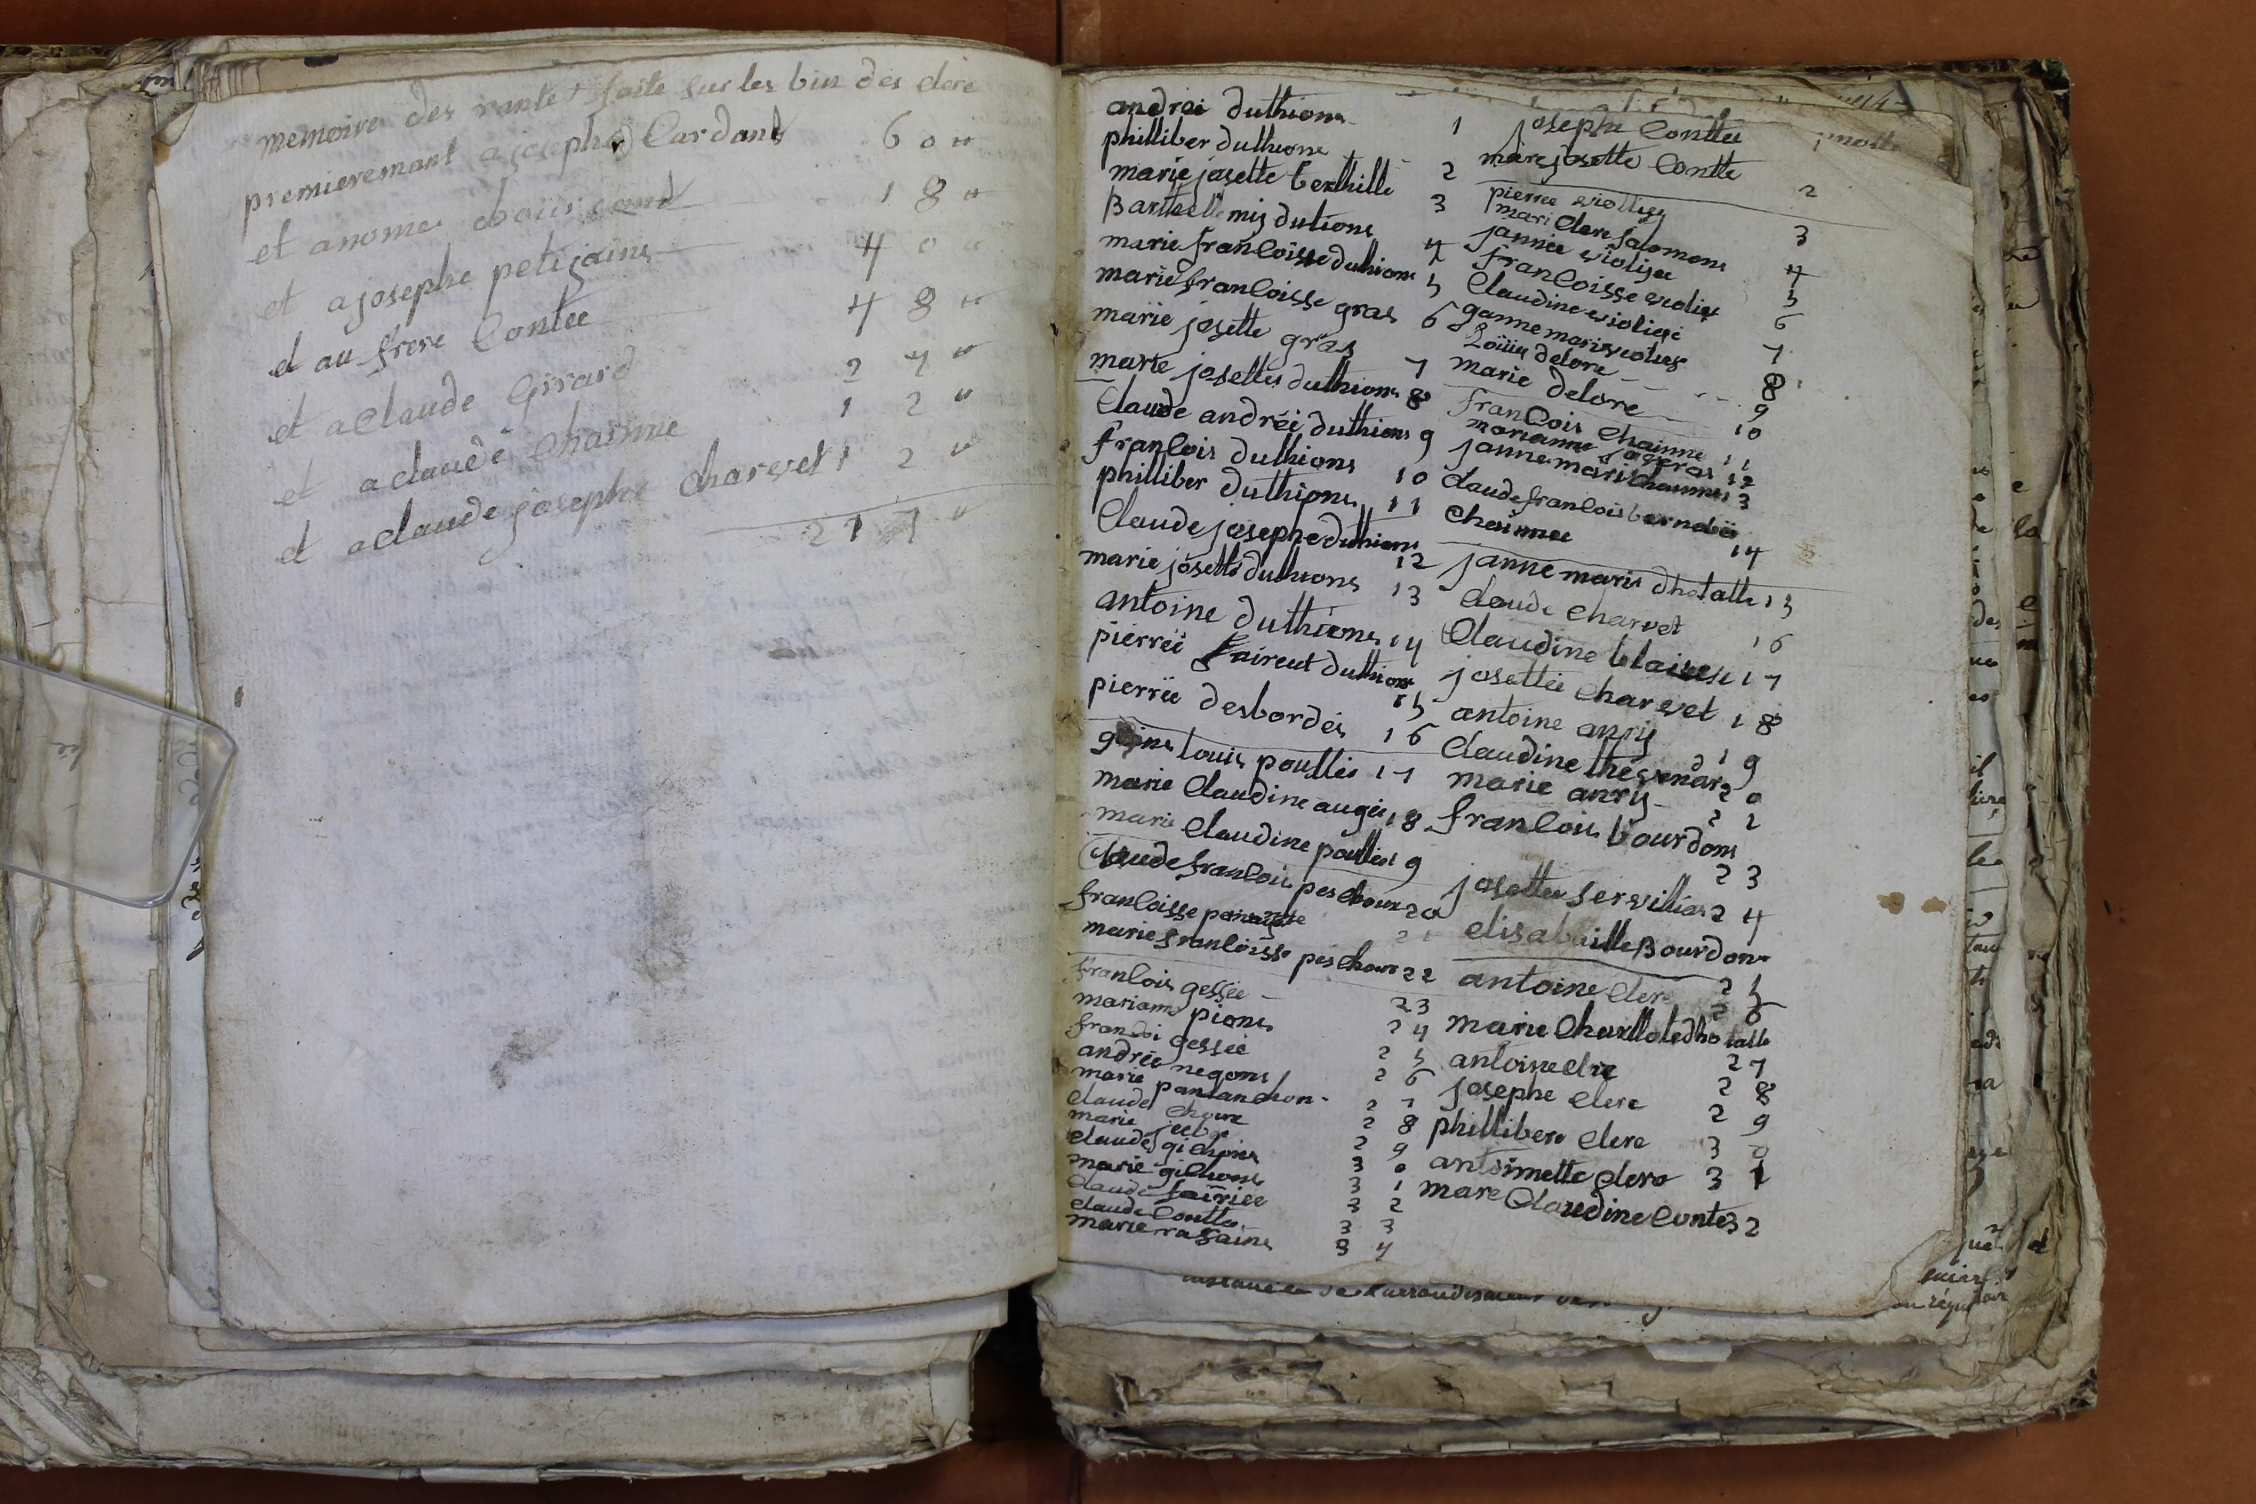 memoire des vante faite sur les bin des clere
premieremant a josephe Cardant 60 "
et anome 18 "
et a josephe petijains 40 "
et au frere Contee 48 "
et a Claude Girard 27 "
et a claude Chainne 12 "
et a claude josephe charvet 12 "
217 "
andréi duthions 1
philliber duthions
marie josette berthille 2
Barthellemis dutions 3
marie franloisse duthions 4
marie franloisse gras 5
marie josette gras 6
7
marie josettes duthions 8
Claude andréi duthions 9
franlois duthions 10
philliber duthions 11
Claude josephe duthions 12
marie josette duthions 13
antoine duthions 14
pierréi duthions 15
pierrée desbordés 16
louis poullés 17
marie Claudine augéi 18
marie Claudine poullés 19
Claude franlois peschoux 20
franloisse 21
marie franloisse peschoux 22
franlois gessée 23
mariams pions 24
gessée 25
andrée negoms 26
marie panlanchon 27
claude choux 28
marie 29
claude gichons 30
marie gichons 31
claude fairiee 32
claude Contte 33
marie rasains 34
josephe Conttee 1
marc josette Contte 2
pierree viollies 3
mari clere salomons
jannée violijee 4
franloisse violie 5
Claudine violieé 6
ganne mari violies 7
Loüis delore 8
marie delore 9
franlois Chainne 10
marianne lageras 11
janne mari Chainne 12
3
claude franlois bernabéi
Chainnee 14
janne maris dhotalle 15
Claude Charvet 16
Claudine blaives 17
josettée Charvet 18
antoine anrij 19
Claudine thevenar 20
marie anrij 22
franlois bourdons 23
josettee servillias 24
elisabaille Bourdons 25
antoine clere 26
marie Charllote dhotalle 27
antoine clre 28
josephe clere 29
philliber clere 30
antoinette clere 31
mare Claudine Conte 32